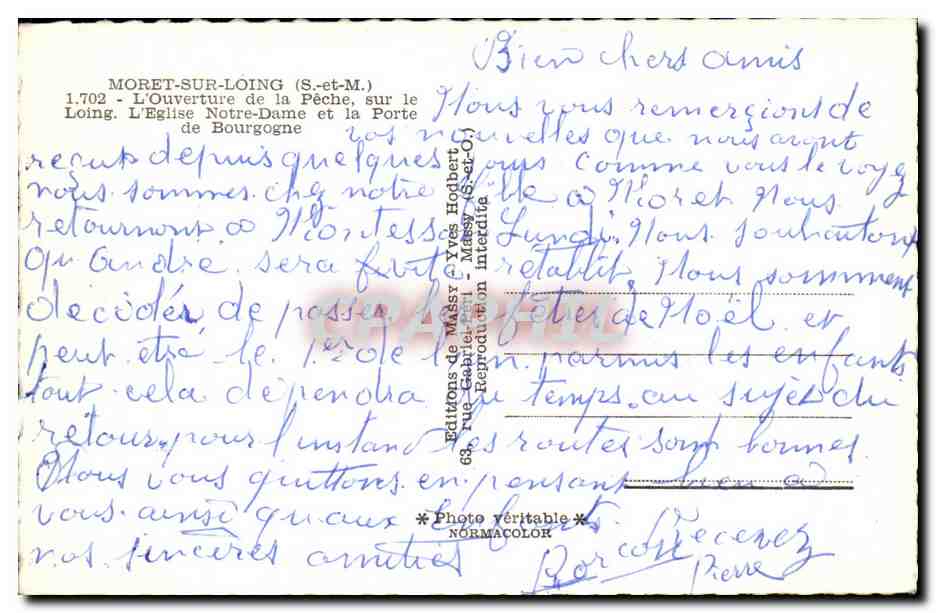 MORET-SUR-LOING (S.-et-M.)
1.702 - L'Ouverture de la Pêche, sur le
Loing. L'Eglise Notre-Dame et la Porte
de Bourgogne
Bien chers amis
Nous vous remerçions de
vos nouvelles que nous avont
reçut depuis quelques jours comme vous le voyez
nous sommes chez notre fille à Moret. Nous
retournont à Lundi. Nous souhaitont
qu'André sera vite rétablit. Nous somment
décidér de passer les fêtes de Noël et
peut être le 1er de l'an parmis les enfants
tout cela dépendra du temps. au sujet du
retour, pour l'instant les routes sont bonnes
Nous vous quittons en pensant bien à
vous ainsi qu'aux enfants. Recevez
nos sincères amitiés
Pierre
Editions de MASSY - Yves Hodbert
63, rue Gabriel-Péri - MASSY (S.-et-O.)
Reproduction interdite
* Photo véritable *
NORMACOLOR
CPAPHIL